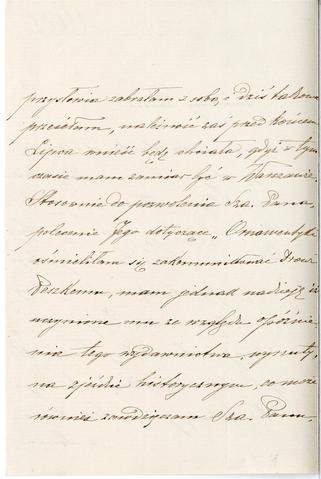 przysłowia zabrałam z sobą, i dziś takowe
przesłałam, należność zaś przed końcem
Lipca uiścić będę chciała, gdyż w tym
czasie mam zamiar być w Warszawie.
Stosownie do pozwolenia Sza. Pana,
polecenie Jego dotyczące „Omawentyki
ośmieliłam się zakomunikować Drowi
Peszkemu, mam jednak nadzieję iż
uczynione mu ze względu opóźnie-
nia tego wydawnictwa, wyrzuty,
na zjeździe historycznym, co może
również zawdzięczam Sza. Panu.